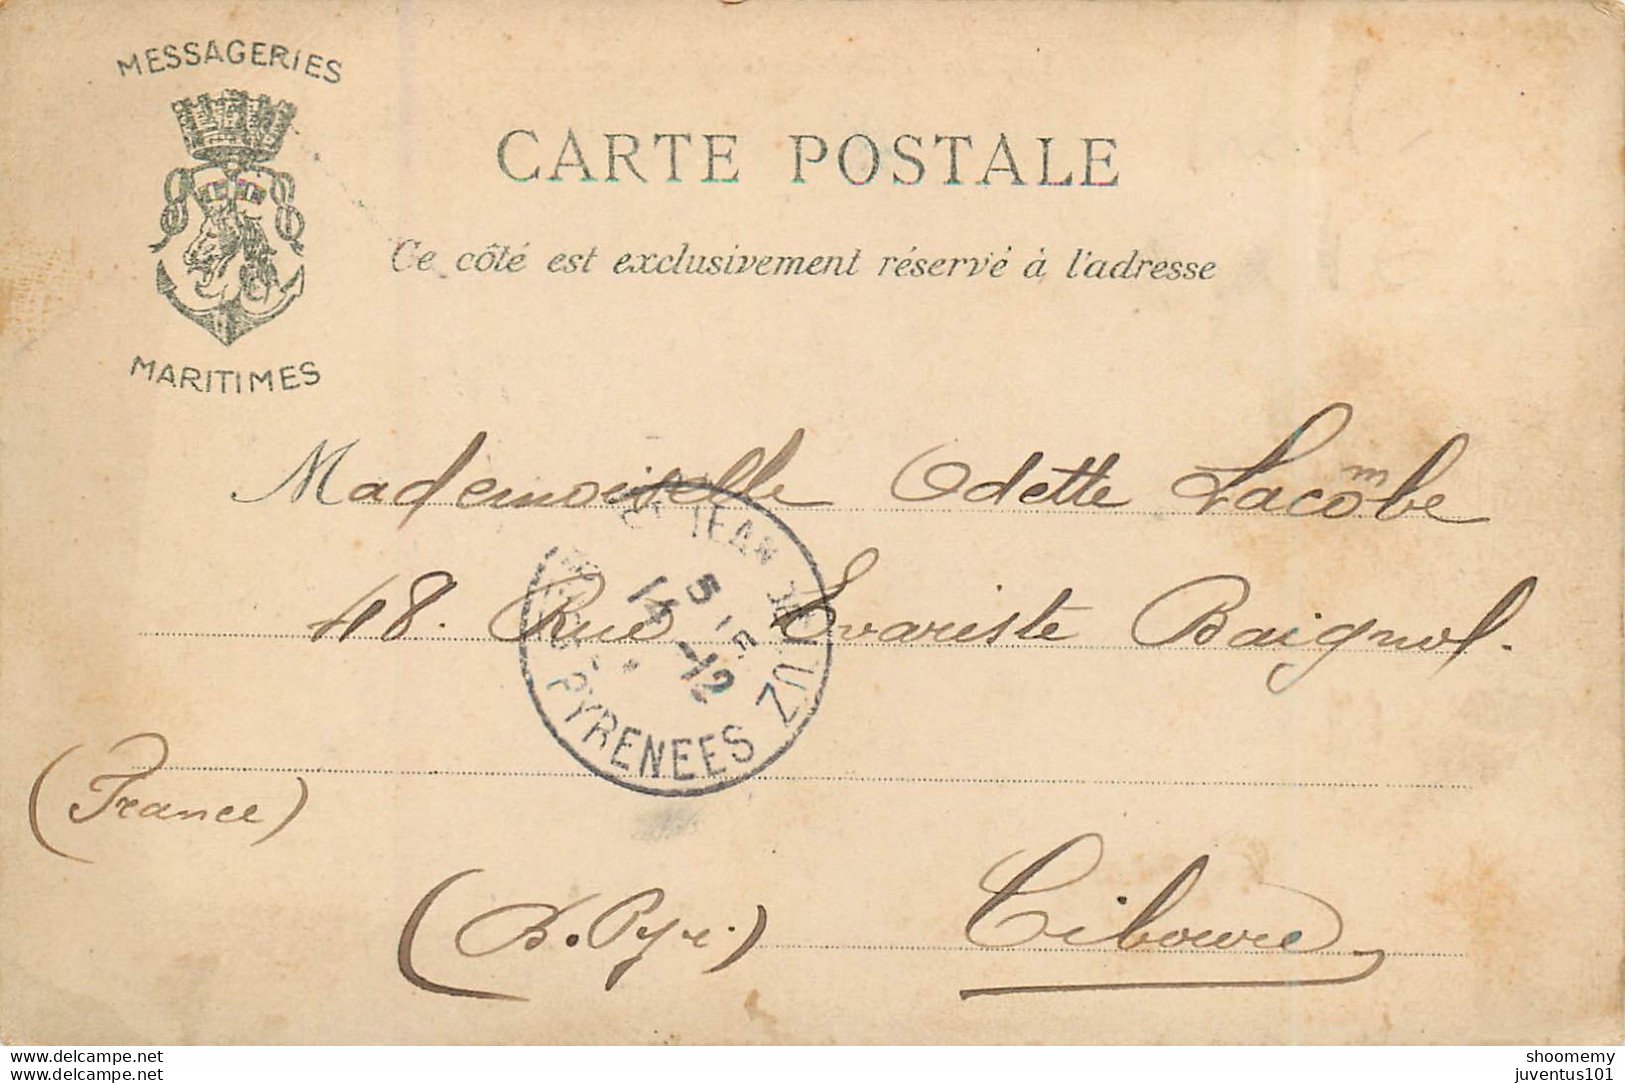 MESSAGERIES
MARITIMES
CARTE POSTALE
Ce côté est exclusivement réservé à l'adresse
Mademoiselle Odette Lacombe
48. Rue Evariste Baignol.
(France)
(B. Pyr.) Ciboure
ST JEAN DE LUZ
5
14 -12
PYRENEES
www.delcampe.net
www.delcampe.net
shoomemy
juventus101